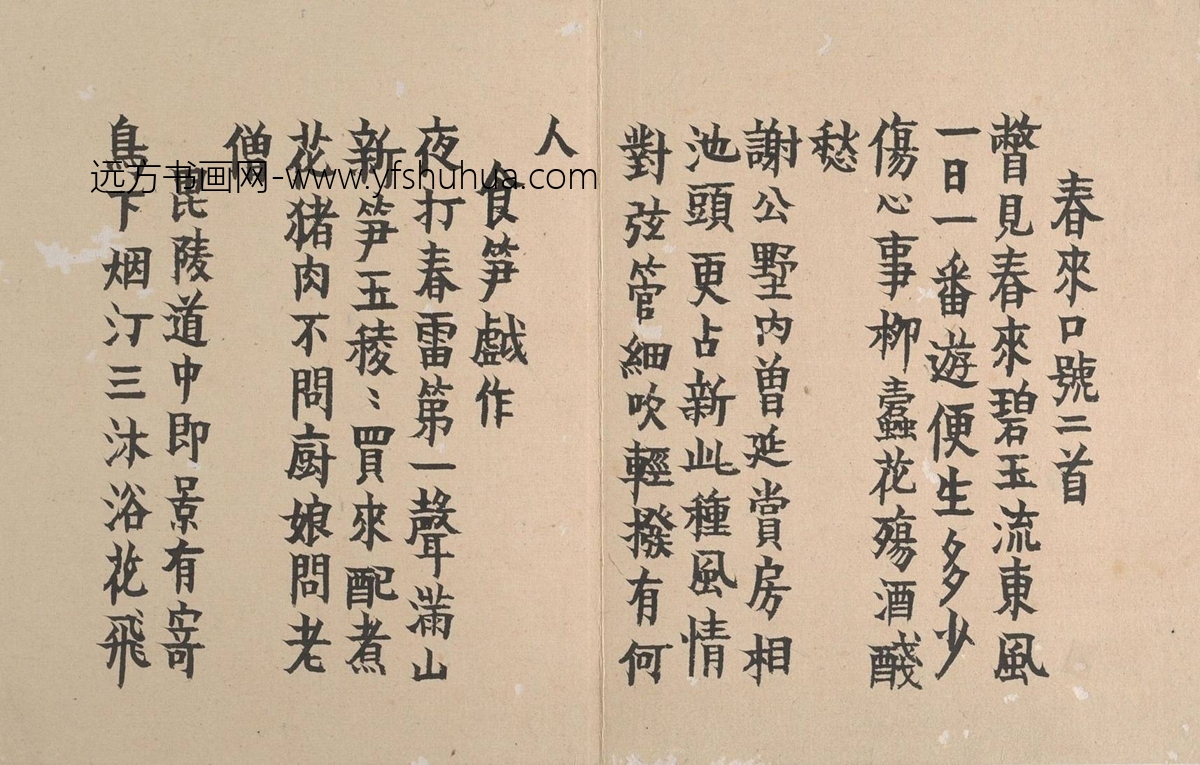 春來口號二首
瞥見春來碧玉流東風
一日一番遊便生多少
傷心事柳蠹花殤酒醆
愁
謝公墅内曾延賞房相
池頭更占新此種風情
對弦管細吹輕撥有何
人
食笋戲作
夜打春雷第一聲滿山
新笋玉稜〻買來配煮
花猪肉不問厨娘問老
僧
毘陵道中即景有寄
下烟汀三沐浴花飛
远方书画网-www.yfshuhua.com